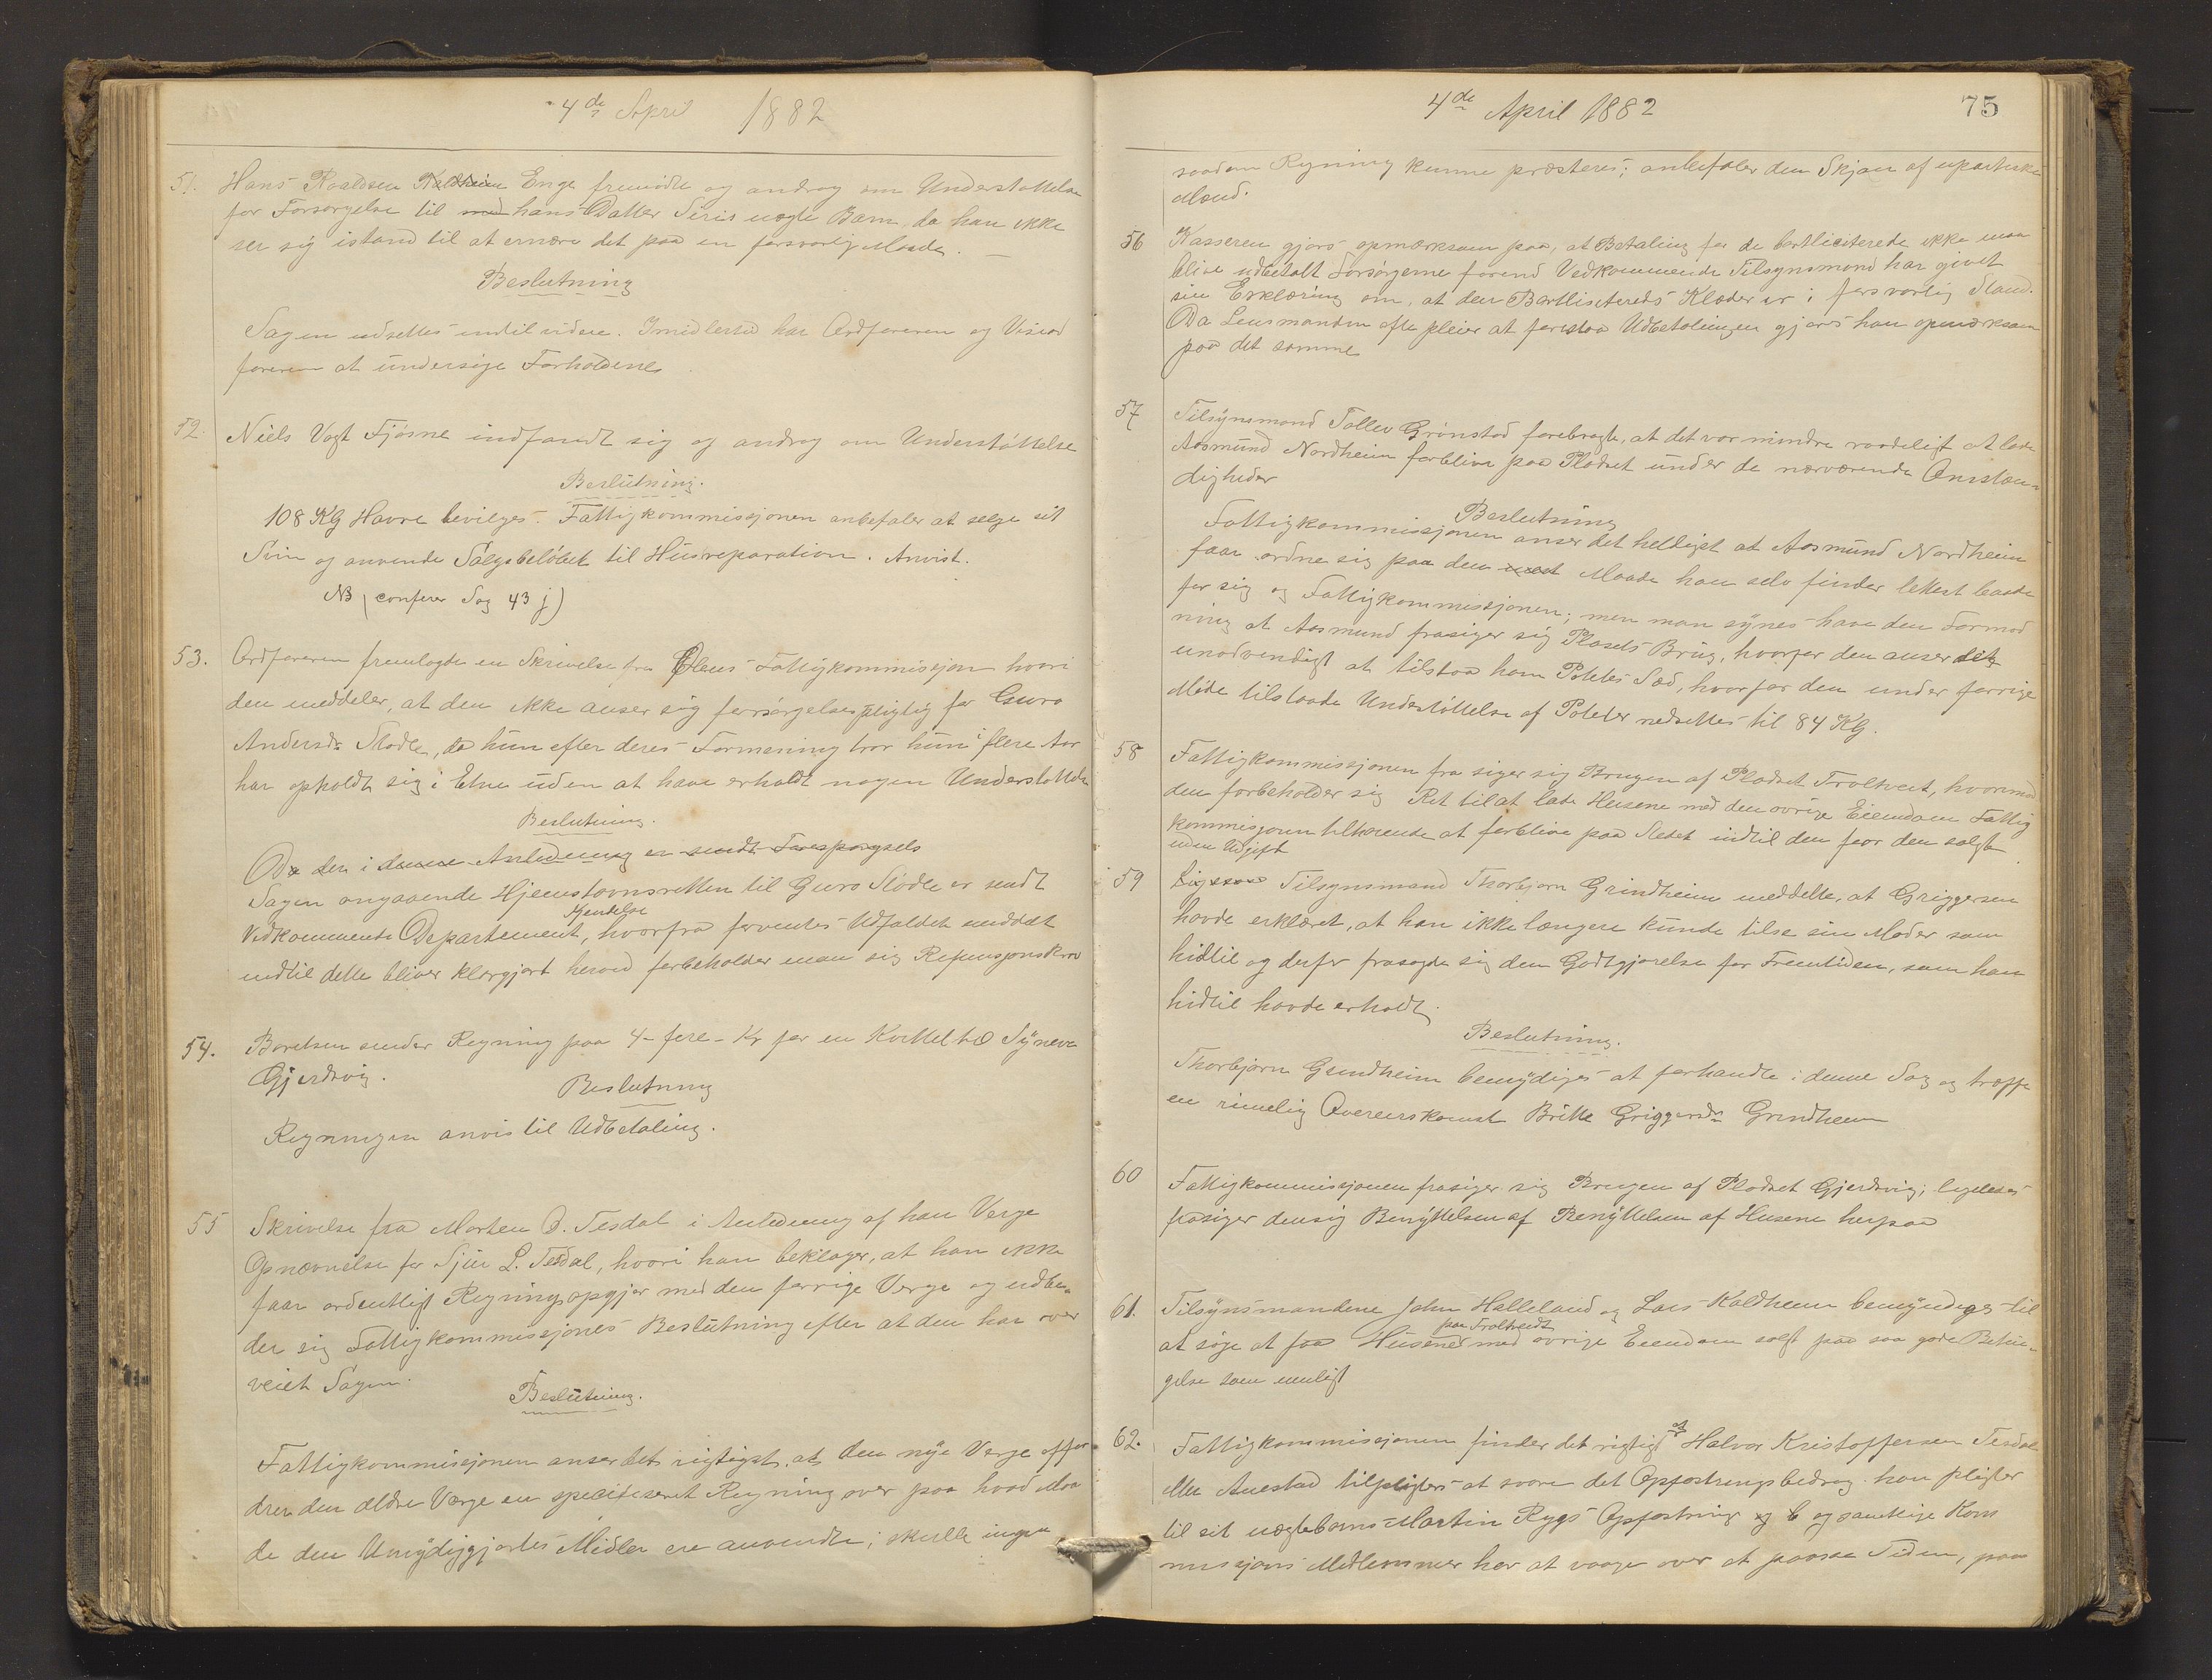 4de April 1882
51. Hans Roaldsen Kaldheim Enge fremødte og androg om Understøttelse
for Forsørgelse til med hans Datter Siris uægte Barn, da han ikke
ser sig istand til at ernære det paa en forsvarlig Maade. —
Beslutning
Sagen udsettes indtil videre. Imidlertid har Ordføreren og Visiord
føreren at undersøge Forholdene
52. Niels Vogt Fjøsne indfandt sig og androg om Understøttelse
Beslutning.
108 KG Havre bevilges. Fattigkommissjonen anbefaler at selge sit
Svin og anvende Salgsbeløbet til Husreparation. Anvist.
NB (conferer Sag 43 j)
53. Ordføreren fremlagde en Skrivelse fra Ølens Fattigkommissjon hvori
den meddeler, at den ikke anser sig forsørgelsespligtig for Guro
Andersdr Flødte, da hun efter deres Formening tror hun i flere Aar
har opholdt sig i Etne uden at have erholdt nogen Understøttelse
Beslutning.
Da den i denne Anledning er sendt Forespørgsels
Sagen angaaende Hjemstavnsretten til Guro Flødte er sendt
Kjendelse
Vedkommende Departement, hvorfra forventes Udfaldet meddelt
indtil dette bliver klargjort herved forbeholder man sig Refusjonskrav
54. Boretsen sender Regning paa 4- fire - Kr for en Kortteltid Syneva
Gjerdvig.
Beslutning
Regningen anvis til Udbetaling.
55 Skrivelse fra Morten O. Tesdal i Anledning af han Verge
Opnævnelse for Sjur L. Tesdal, hvori han beklager, at han ikke
faar ordentligt Regningsopgjør med den forrige Verge og udbe-
der sig Fattigkommissjones Beslutning efter at den har over
veiet Sagen.
Beslutning.
Fattigkommissjonen anser det rigtigst, at den nye Verge affor
drer den ældre Værge en specificeret Regning over paa hvad Maa
de den Umyndiggjortes Midler ere anvendte; skulle ingen
4de April 1882
75
saadan Regning kunne præsteres; anbefaler den Skjøn af upartiske
Mænd.
56 Kassereren gjøres opmærksom paa, at Betaling for de bortliciterede ikke maa
blive udbetalt Forsørgerne førend Vedkommende Tilsynsmand har givet
sin Erklæring om, at den Bortliciteredes Klæder er i forsvarlig Stand.
Da Lensmanden ofte pleier at forestaa Udbetalingen gjøres han opmærksom
paa det samme
57 Tilsynsmand Tollev Grønstad forebragte, at det var mindre raadeligt at lade
Aasmund Nordheim forblive paa Pladset under de nærværende Omstæn-
digheder
Beslutning
Fattigkommissjonen anser det heldigst at Aasmund Nordheim
faar ordne sig paa den Maade han selv finder lettest baade
for sig og Fattigkommissjonen; men man synes have den Formod
ning at Aasmund frasiger sig Plasets Brug, hvorfor den anser det
unødvendigt at tilstaa ham Potetes Sæd, hvorfor den under forrige
Møde tilstaaede Understøttelse af Poteter nedsettes til 84 KG.
58 Fattigkommissjonen fra siger sig Brugen af Pladset Troltveit, hvormed
den forbeholder sig Ret til at lade Husene med den øvrige Eiendom Fattig
kommisjonen tilhørende at forblive paa Stedet indtil den faar den solgt
uden Udgift
59 Ligesaa Tilsynsmand Thorbjørn Grindheim meddelte, at Griggersen
havde erklæret, at han ikke længere kunde tilse sin Moder som
hidtil og derfor frasagde sig den Godtgjørelse for Fremtiden, som han
hidtil havde erholdt.
Beslutning.
Thorbjørn Grindheim bemyndiges at forhandle i denne Sag og træffe
en rimelig Overenskomst Britte Griggersdr Grindheim
60 Fattigkommissjonen frasiger sig Brugen af Pladset Gjerdvig; ligeledes
frasiger den sig Benyttelsen af Benyttelsen af Husene herpaa
61. Tilsynsmandene John Helleland og Lars Kaldheim bemyndiges til
paa Troltveidt
at søge at faa Husene med øvrige Eiendom solgt paa saa gode Betin-
gelse som muligt
62. Fattigkommissjonen finder det rigtigt at Halvor Kristoffersen Tesdal
eller Auestad tilpligtes at svare det Opfostringsbidrag han pligter
til sit uægtebarns Martin Rygs Opfostring og samtlige Kom
missjons Medlemmer har at vaage over at passe Tiden, paa